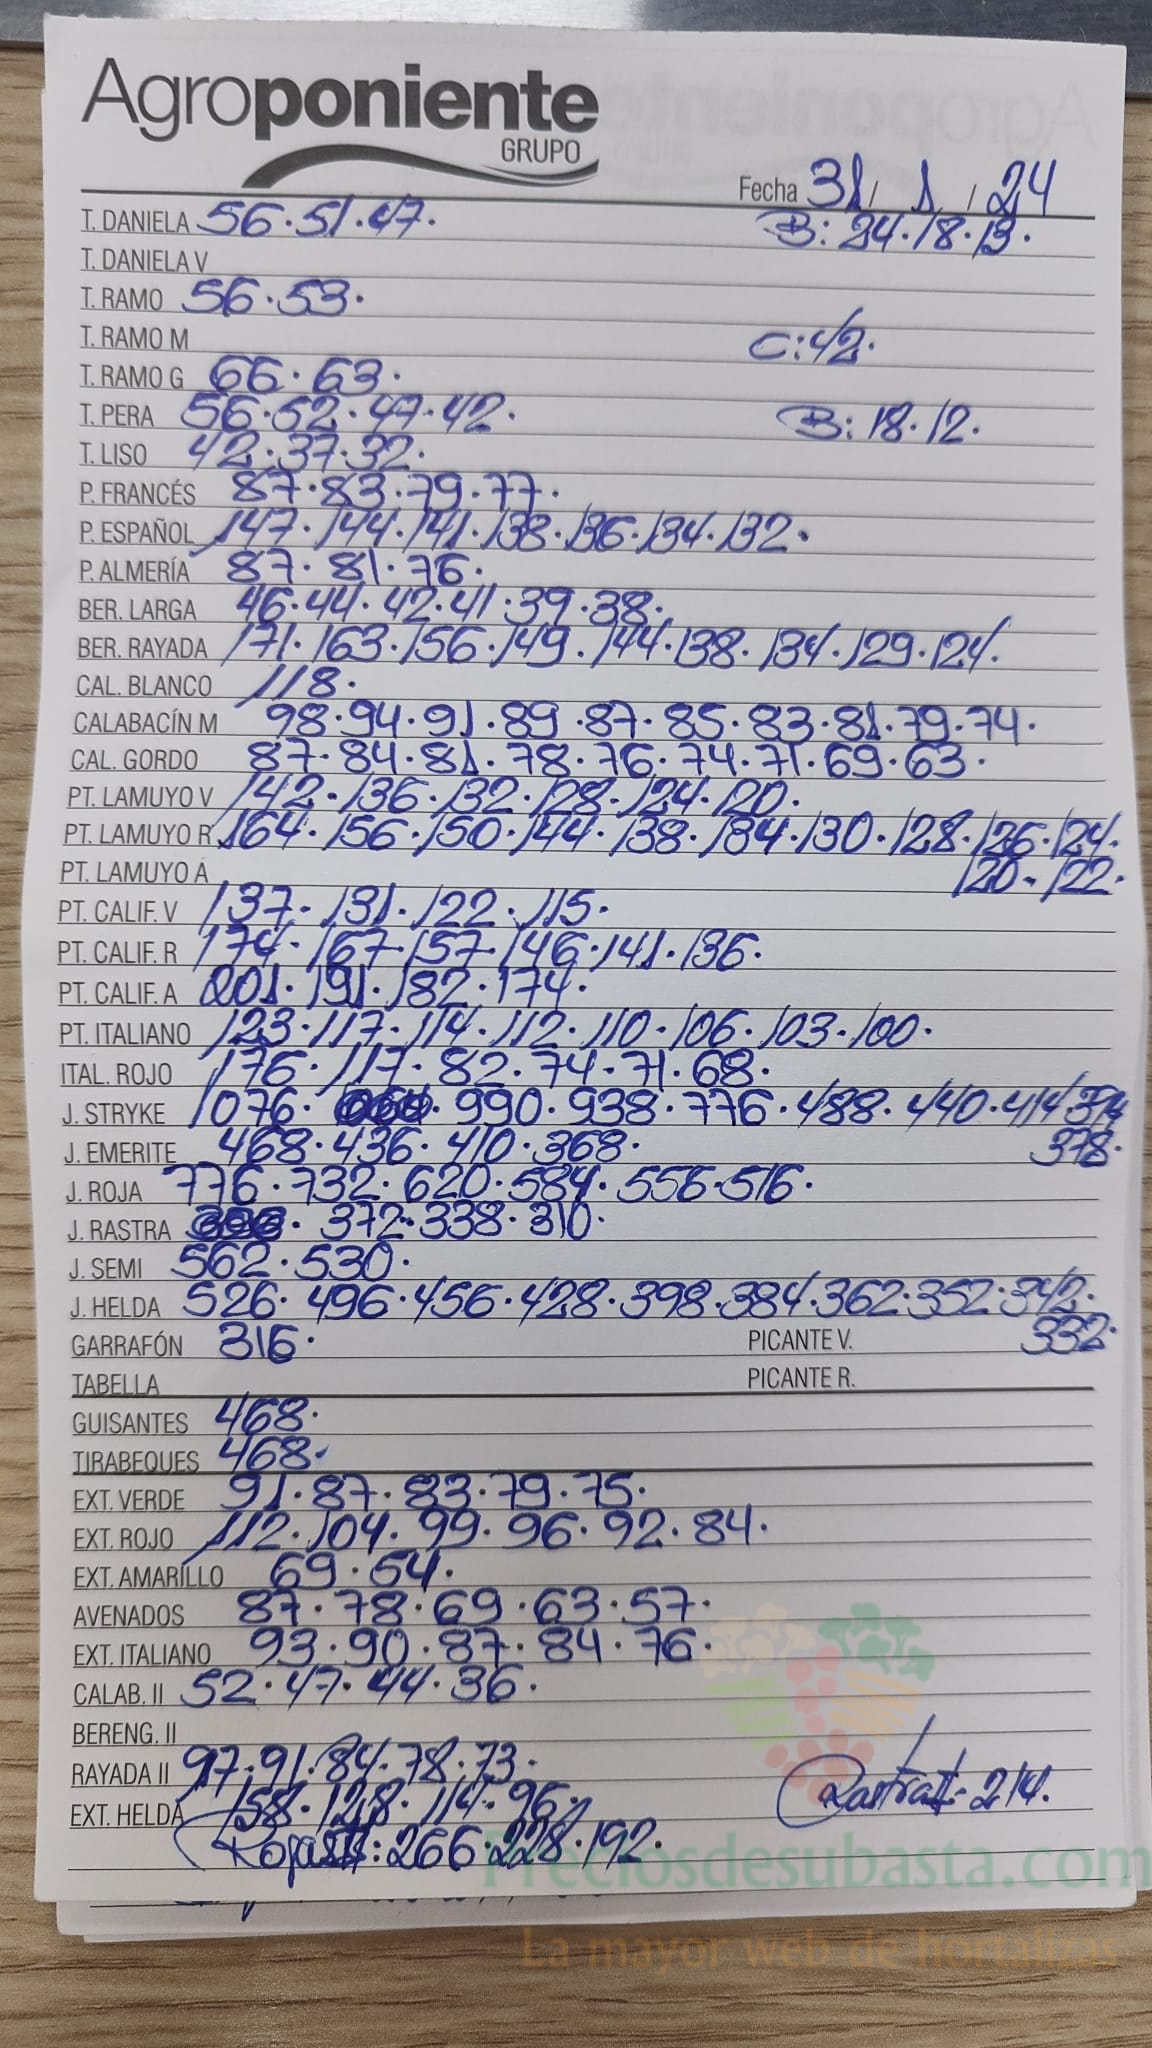 Agroponiente
GRUPO
Fecha 31 / 1 / 24
T. DANIELA 56·51·47· B: 24·18·13·
T. DANIELA V
T. RAMO 56·53·
T. RAMO M C: 42·
T. RAMO G 66·63·
T. PERA 56·52·47·42· B: 18·12·
T. LISO 42·37·32·
P. FRANCÉS 87·83·79·77·
P. ESPAÑOL 147·144·141·138·136·134·132·
P. ALMERÍA 87·81·76·
BER. LARGA 46·44·42·41·39·38·
BER. RAYADA 171·163·156·149·144·138·134·129·124·
CAL. BLANCO 118·
CALABACÍN M 98·94·91·89·87·85·83·81·79·74·
CAL. GORDO 87·84·81·78·76·74·71·69·63·
PT. LAMUYO V 142·136·132·128·124·120·
PT. LAMUYO R 164·156·150·144·138·134·130·128·126·124·
PT. LAMUYO A 120·122·
PT. CALIF. V 137·131·122·115·
PT. CALIF. R 174·167·157·146·141·136·
PT. CALIF. A 201·191·182·174·
PT. ITALIANO 123·117·114·112·110·106·103·100·
ITAL. ROJO 176·117·82·74·71·68·
J. STRYKE 1076· 990·938·776·488·440·414
J. EMERITE 468·436·410·368· 378·
J. ROJA 776·732·620·584·556·516·
J. RASTRA 372·338·310·
J. SEMI 562·530·
J. HELDA 526·496·456·428·398·384·362·352·342·
GARRAFÓN 316· PICANTE V. 332·
TABELLA PICANTE R.
GUISANTES 468·
TIRABEQUES 468·
EXT. VERDE 91·87·83·79·75·
EXT. ROJO 112·104·99·96·92·84·
EXT. AMARILLO 69·54·
AVENADOS 87·78·69·63·57·
EXT. ITALIANO 93·90·87·84·76·
CALAB. II 52·47·44·36·
BERENG. II
RAYADA II 97·91·84·78·73·
EXT. HELDA 158·128·114·96· Rastra II: 214·
Roja II: 266·228·192·
Preciosdesubasta.com
La mayor web de hortalizas